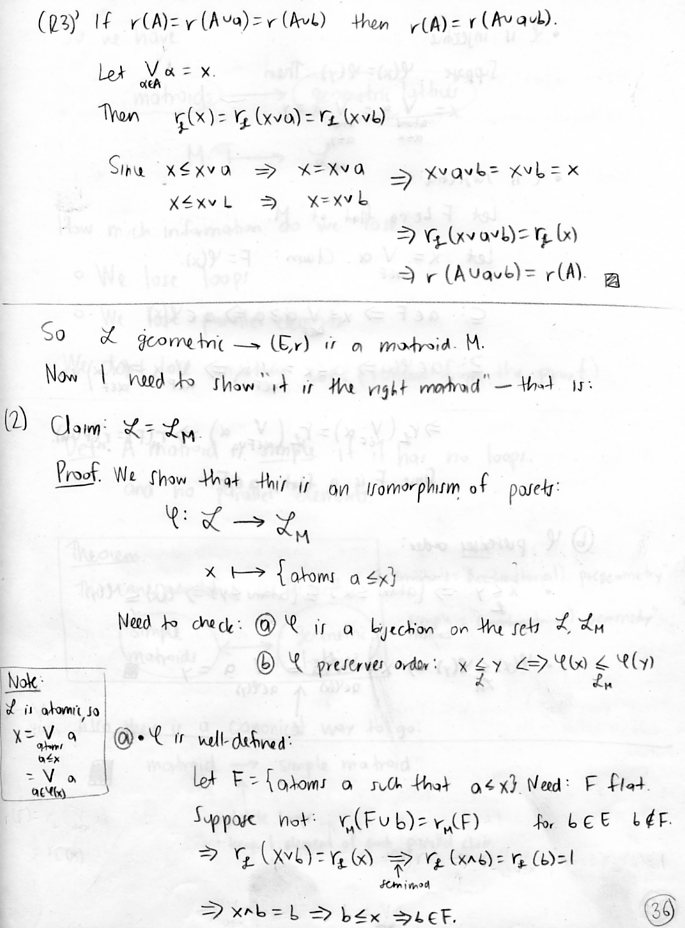 (R3)' If r(A)=r(A∪a)=r(A∪b) then r(A)=r(A∪a∪b).
Let ⋁ α = x.
α∈A
Then r_𝓛(x)=r_𝓛(x∨a)=r_𝓛(x∨b)
Since x≤x∨a ⇒ x=x∨a ⇒ x∨a∨b=x∨b=x
x≤x∨b ⇒ x=x∨b
⇒ r_𝓛(x∨a∨b)=r_𝓛(x)
⇒ r(A∪a∪b)=r(A).
So 𝓛 geometric → (E,r) is a matroid M.
Now I need to show "it is the right matroid" — that is:
(2) Claim: 𝓛=𝓛_M.
Proof. We show that this is an isomorphism of posets:
φ: 𝓛 → 𝓛_M
x ↦ {atoms a≤x}
Need to check: ⓐ φ is a bijection on the sets 𝓛, 𝓛_M
ⓑ φ preserves order: x ≤_𝓛 y <=> φ(x) ≤_𝓛_M φ(y)
Note:
𝓛 is atomic, so
x = ⋁ a
atoms
a≤x
= ⋁ a
a∈φ(x)
ⓐ • φ is well-defined:
Let F={atoms a such that a≤x}. Need: F flat.
Suppose not: r_M(F∪b)=r_M(F) for b∈E b∉F.
⇒ r_𝓛(x∨b)=r_𝓛(x) ⇒ r_𝓛(x∧b)=r_𝓛(b)=1
semimod
⇒ x∧b=b ⇒ b≤x ⇒ b∈F.
36